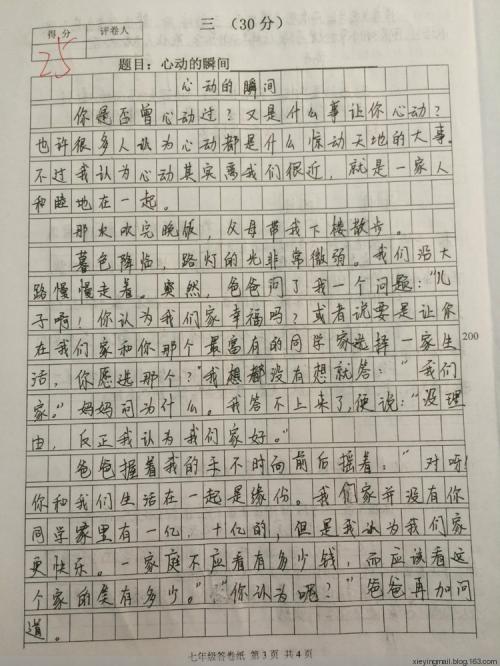 三（30分）
得分
评卷人
25
题目：心动的瞬间
心动的瞬间
你是否曾心动过？又是什么事让你心动？
也许很多人认为心动都是什么惊动天地的大事。
不过我认为心动其实离我们很近，就是一家人
和睦地在一起。
那次吃完晚饭，父母带我下楼散步。
暮色降临，路灯的光非常微弱。我们沿大
路慢慢走着。突然，爸爸问了我一个问题：“儿
子啊！你认为我们家幸福吗？或者说要是让你
在我们家和你那个最富有的同学家选择一家生
200
活，你愿选那个？”我想都没有想就答：“我们
家。”妈妈问为什么。我答不上来了，便说：“没理
由，反正我认为我们家好。”
爸爸握着我的手不时向前后摇着：“对呀！
你和我们生活在一起是缘份。我们家并没有你
同学家里有一亿，十亿的，但是我认为我们家
更快乐。一家庭不应看有多少钱，而应该看这
个家的美有多少。”“你认为呢？”爸爸再加问
道。
七年级答卷纸 第3页 共4页
xieyingmail.blog.163.com